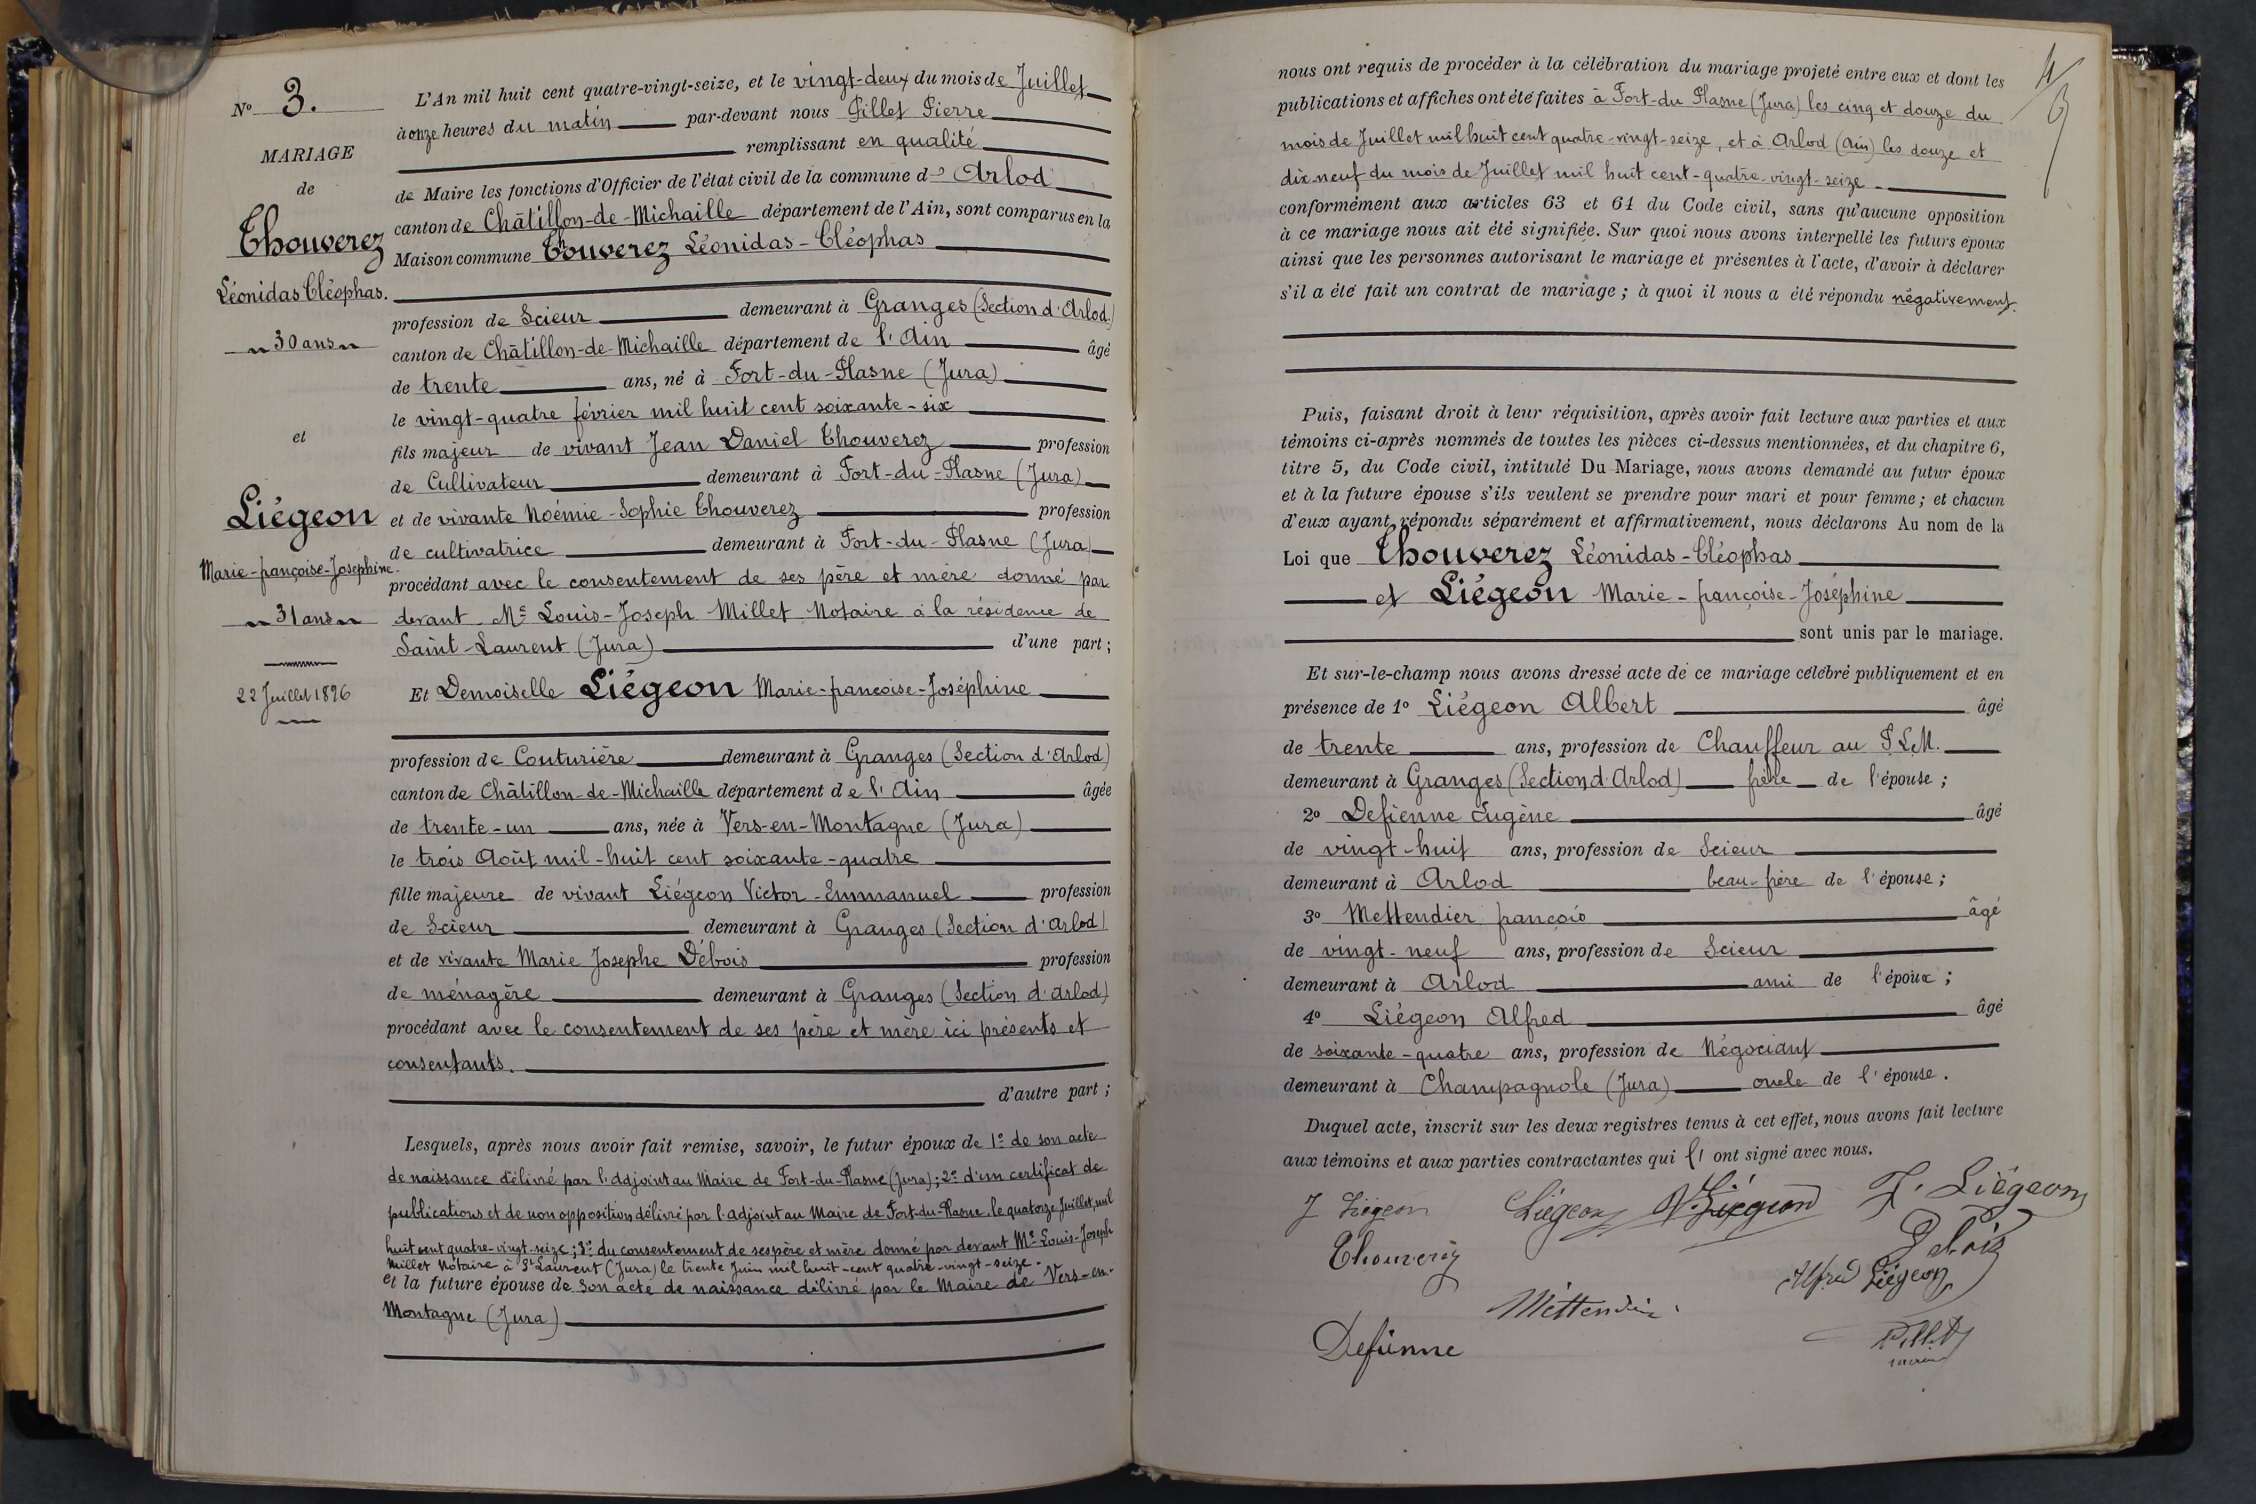 N° 3.
MARIAGE
de
Thouverez
Léonidas Cléophas.
30 ans
et
Liégeon
Marie-françoise-Josephine.
31 ans
22 Juillet 1896
L'An mil huit cent quatre-vingt-seize, et le vingt-deux du mois de Juillet
à onze heures du matin par-devant nous Pillet Pierre
remplissant en qualité
de Maire les fonctions d'Officier de l'état civil de la commune d' Arlod
canton de Châtillon-de-Michaille département de l'Ain, sont comparus en la
Maison commune Thouverez Léonidas-Cléophas
profession de Scieur demeurant à Granges (Section d'Arlod)
canton de Châtillon-de-Michaille département de l'Ain âgé
de trente ans, né à Fort-du-Plasne (Jura)
le vingt-quatre février mil huit cent soixante-six
fils majeur de vivant Jean Daniel Thouverez profession
de Cultivateur demeurant à Fort-du-Plasne (Jura)
et de vivante Noémie-Sophie Thouverez profession
de cultivatrice demeurant à Fort-du-Plasne (Jura)
procédant avec le consentement de ses père et mère donné par
devant Me Louis-Joseph Millet Notaire à la résidence de
Saint-Laurent (Jura) d'une part;
Et Demoiselle Liégeon Marie-françoise-Joséphine
profession de Couturière demeurant à Granges (Section d'Arlod)
canton de Châtillon-de-Michaille département de l'Ain âgée
de trente-un ans, née à Vers-en-Montagne (Jura)
le trois Août mil-huit cent soixante-quatre
fille majeure de vivant Liégeon Victor-Emmanuel profession
de Scieur demeurant à Granges (Section d'Arlod)
et de vivante Marie Josephe Débois profession
de ménagère demeurant à Granges (Section d'Arlod)
procédant avec le consentement de ses père et mère ici présents et
consentants.
d'autre part;
Lesquels, après nous avoir fait remise, savoir, le futur époux de 1° de son acte
de naissance délivré par l'adjoint au Maire de Fort-du-Plasne (Jura); 2° d'un certificat de
publications et de non opposition délivré par l'adjoint au Maire de Fort-du-Plasne, le quatorze Juillet mil
huit cent quatre-vingt-seize; 3° du consentement de ses père et mère donné par devant Me Louis-Joseph
Millet Notaire à St Laurent (Jura) le trente Juin mil huit-cent quatre-vingt-seize.
et la future épouse de son acte de naissance délivré par le Maire de Vers-en-
Montagne (Jura)
nous ont requis de procéder à la célébration du mariage projeté entre eux et dont les
publications et affiches ont été faites à Fort-du Plasne (Jura) les cinq et douze du
mois de Juillet mil huit cent quatre-vingt-seize, et à Arlod (Ain) les douze et
dix-neuf du mois de Juillet mil huit cent-quatre-vingt-seize
conformément aux articles 63 et 64 du Code civil, sans qu'aucune opposition
à ce mariage nous ait été signifiée. Sur quoi nous avons interpellé les futurs époux
ainsi que les personnes autorisant le mariage et présentes à l'acte, d'avoir à déclarer
s'il a été fait un contrat de mariage; à quoi il nous a été répondu négativement.
Puis, faisant droit à leur réquisition, après avoir fait lecture aux parties et aux
témoins ci-après nommés de toutes les pièces ci-dessus mentionnées, et du chapitre 6,
titre 5, du Code civil, intitulé Du Mariage, nous avons demandé au futur époux
et à la future épouse s'ils veulent se prendre pour mari et pour femme; et chacun
d'eux ayant répondu séparément et affirmativement, nous déclarons Au nom de la
Loi que Thouverez Léonidas-Cléophas
et Liégeon Marie-françoise-Joséphine
sont unis par le mariage.
Et sur-le-champ nous avons dressé acte de ce mariage célébré publiquement et en
présence de 1° Liégeon Albert âgé
de trente ans, profession de Chauffeur au P.L.M.
demeurant à Granges (Section d'Arlod) frère de l'épouse;
2° Defienne Eugène âgé
de vingt-huit ans, profession de Scieur
demeurant à Arlod beau-frère de l'épouse;
3° Mettendier françois âgé
de vingt-neuf ans, profession de Scieur
demeurant à Arlod ami de l'époux;
4° Liégeon Alfred âgé
de soixante-quatre ans, profession de Négociant
demeurant à Champagnole (Jura) oncle de l'épouse.
Duquel acte, inscrit sur les deux registres tenus à cet effet, nous avons fait lecture
aux témoins et aux parties contractantes qui l' ont signé avec nous.
J Liégeon Liégeon V. Liégeon F. Liégeon
Thouverez Debois
Alfred Liégeon
Mettendier
Defienne Pillet